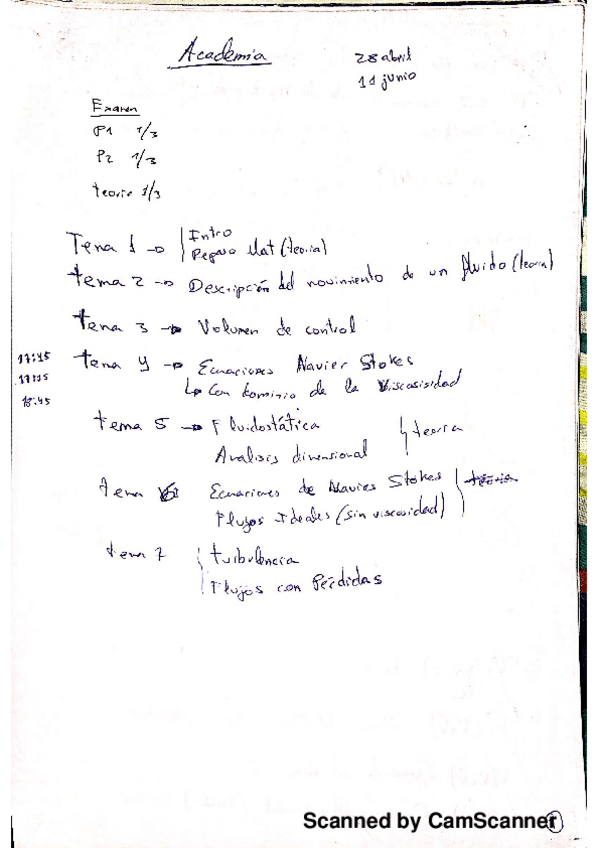 Academia
28 abril
11 junio
Examen
P1 1/3
P2 1/3
teoría 1/3
Tema 1 → Intro
Repaso Mat (teoría)
tema 2 → Descripción del movimiento de un fluido (teoría)
tema 3 → Volumen de control
17:45
tema 4 → Ecuaciones Navier Stokes
18:45
↳ Con dominio de la Viscosisidad
tema 5 → Fluidostática
Analisis dimensional
teoria
tema 6 Ecuaciones de Navies Stokes
Flujos Ideales (sin viscosidad)
tema 7 turbulencia
Flujos con Pérdidas
Scanned by CamScanner
1